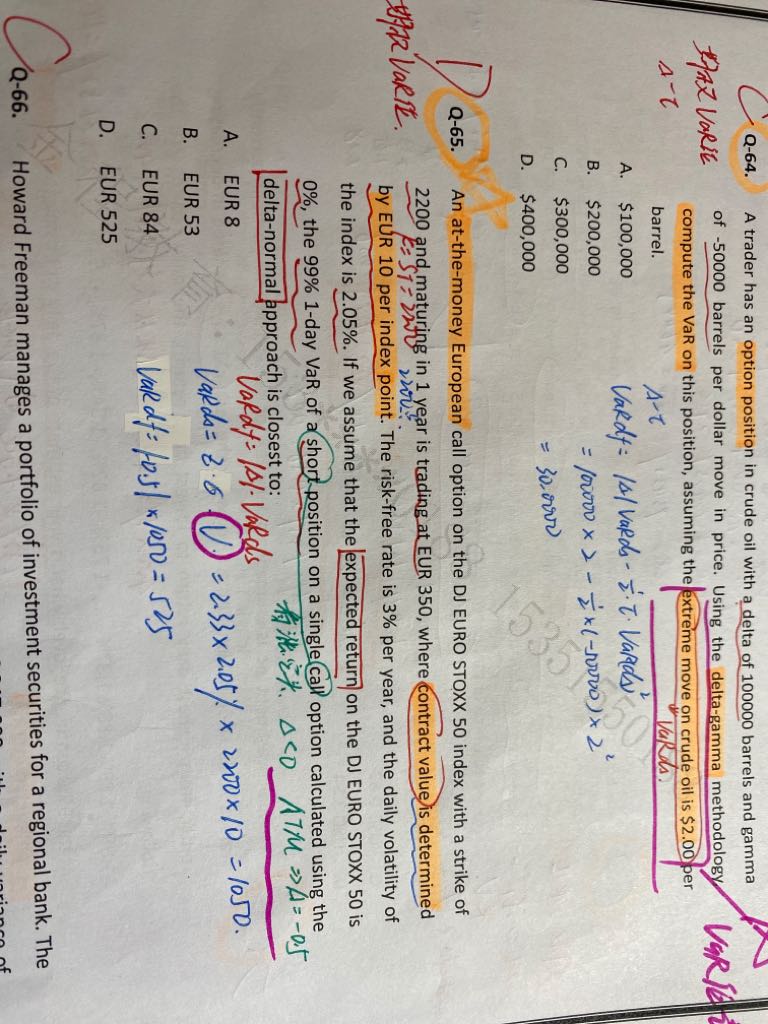 Q-64. A trader has an option position in crude oil with a delta of 100000 barrels and gamma
of -50000 barrels per dollar move in price. Using the delta-gamma methodology,
compute the VaR on this position, assuming the extreme move on crude oil is $2.00 per
barrel.
VaRds.
A. $100,000
B. $200,000
C. $300,000
D. $400,000
VaRdf = |Δ| VaRds - ½·τ·VaRds²
= 100000 × 2 - ½ × (-50000) × 2²
= 300000
Q-65. An at-the-money European call option on the DJ EURO STOXX 50 index with a strike of
2200 and maturing in 1 year is trading at EUR 350, where contract value is determined
by EUR 10 per index point. The risk-free rate is 3% per year, and the daily volatility of
the index is 2.05%. If we assume that the expected return on the DJ EURO STOXX 50 is
0%, the 99% 1-day VaR of a short position on a single call option calculated using the
delta-normal approach is closest to:
Δ<0 ATM ⇒ Δ=-0.5
A. EUR 8
B. EUR 53
C. EUR 84
D. EUR 525
VaRdf = |Δ|·VaRds
VaRds = Z·σ·V. = 2.33 × 2.05% × 2200 × 10 = 1050.
VaRdf = |-0.5| × 1050 = 525
Q-66. Howard Freeman manages a portfolio of investment securities for a regional bank. The